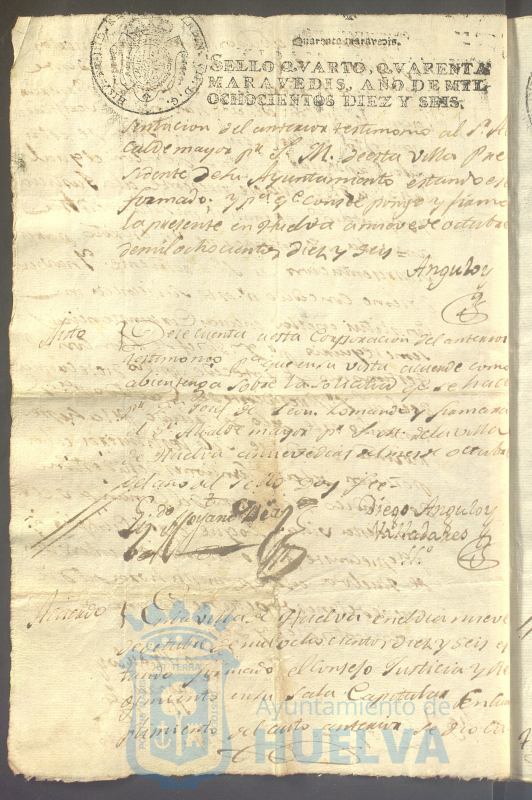 Quarenta maravedis.
SELLO QVARTO, QVARENTA
MARAVEDIS, AÑO DE MIL
OCHOCIENTOS DIEZ Y SEIS.
sentacion del anterior testimonio al Sr. Al
calde mayor pr. S. M. de esta villa Pre
sidente de su Ayuntamiento estando
formado. y pa. qe. conste pongo y firmo
la presente en Huelva a nueve de octubre
de mil ochocientos diez y seis =
Angulo y
Auto
Dese cuenta a esta Corporacion del anterior
testimonio pa. que en su vista acuerde como
a bien tenga sobre la solicitud qe. se hace
pr. Josef de Leon. Lo mando y firmara
el Sr. Alcalde mayor pr. S. M. de la villa
de Huelva a nueve dias del mes de octubre
del año del sello doy fee =
Diego Angulo y
Valladares
Acuerdo
En la villa de Huelva en el dia nueve
de octubre de mil ochocientos diez y seis es
tando formado el Consejo Justicia y Re
gimiento en su Sala Capitular En cum
plimiento del auto anterior se dio
Ayuntamiento de
HUELVA